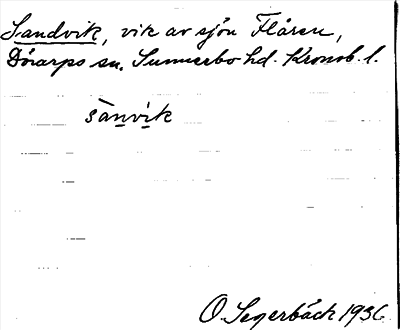 Sandvik, vik av sjön Flåren,
Dörarps sn. Sunnerbo hd. Kronob. l.
sanvik
O Segerbäck 1936